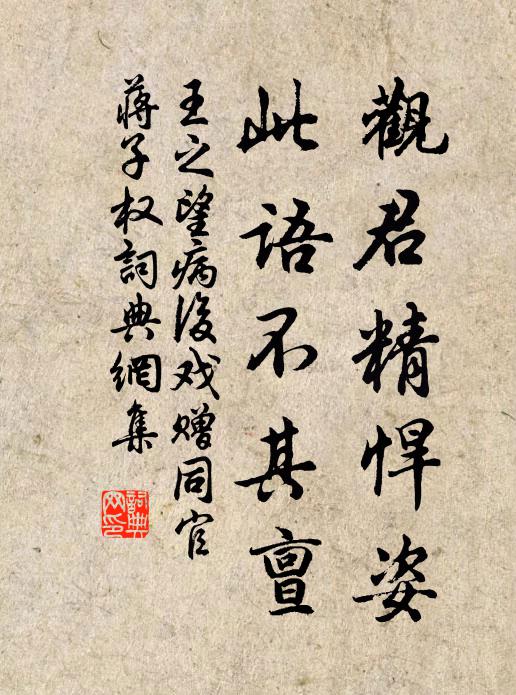 觀君精悍姿
此語不其亶
王之望病後戏赠同官
蔣子权詞典網集
詞典网印